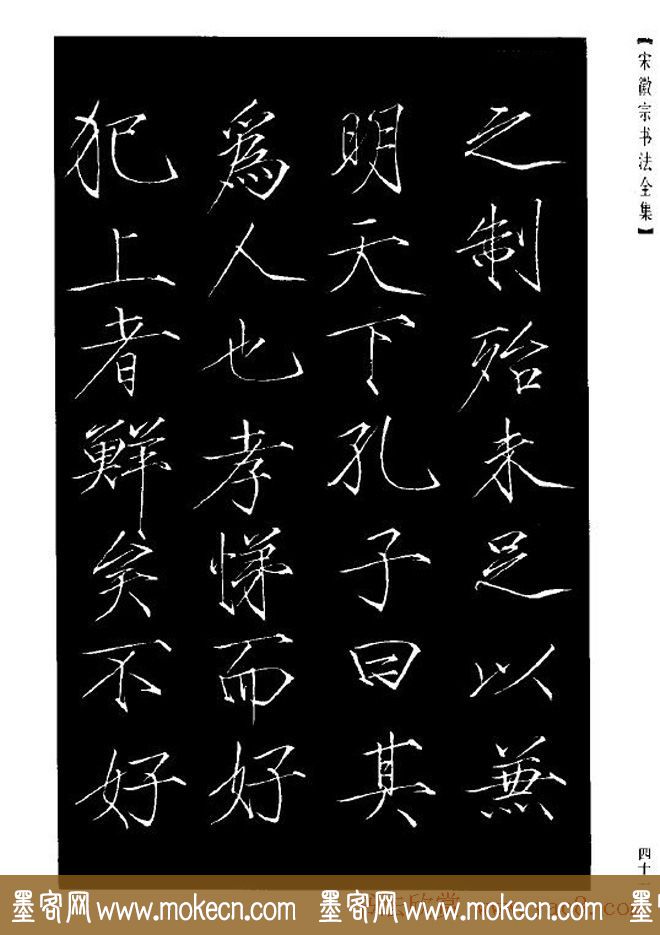 【宋徽宗书法全集】
之制殆未足以兼
明天下孔子曰其
爲人也孝悌而好
犯上者鮮矣不好
四十
墨客网 www.mokecn.com 墨客网 www.mokecn.com